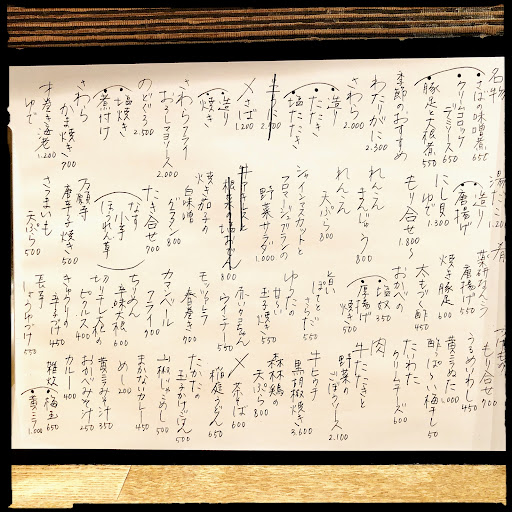 名物
さばの味噌煮 650
クリームコロッケ
デミソース 650
豚足と大根煮 550
季節のおすすめ
わたりがに 2.300
さわら 2.000
造り
たたき
塩たたき
〆さば 1.200
造り
焼き
さわらフライ
おろしマヨソース 2.000
のどぐろ 2.500
塩焼き
煮付け
さわら
かま焼き 700
才巻き海老 1.200
ゆで
造り
唐揚げ
にし貝 1.300
ゆで
もり合せ 1.800〜
れんこん
まんじゅう 800
れんこん
天ぷら 800
シャインマスカットと
フロマージュブランの
野菜サラダ 1.000
焼き茄子の
白味噌
グラタン 800
たき合せ 700
なす
小芋
ほうれん草
万願寺
唐辛子焼き 500
さつまいも
天ぷら 500
薬研なんこつ
唐揚げ 500
焼き豚足 600
太もづく酢 450
おかべの
塩奴 350
唐揚げ
焼き 500
ぽてと
さらだ 550
ゆうたの
甘〜い
玉子焼き 550
ウインナー
モッツァレラ
春巻き 900
カマンベール
フライ 900
ちりめん
辛味大根 600
切干し大根の
ピクルス 400
きゅうりの
辛子づけ 450
長芋
しょうゆづけ 550
もり合せ 900
うるめいわし 450
黄ニラぬた 1.000
酸っぱ〜い梅干し 50
たいわた
クリームチーズ 600
肉
牛たたきと
野菜の
ごぼうソース 2.100
牛ヒレの
黒胡椒焼き 3.600
森林鶏の
天ぷら 800
〆
茶そば 600
稲庭うどん 650
たかたの
玉子かけごはん 500
山椒じゃこめし 500
まかないカレー 450
めし 200
黄ニラみそ汁 350
おかべみそ汁 250
カルー 400
雑炊
梅玉 650
黄ニラ 1.000